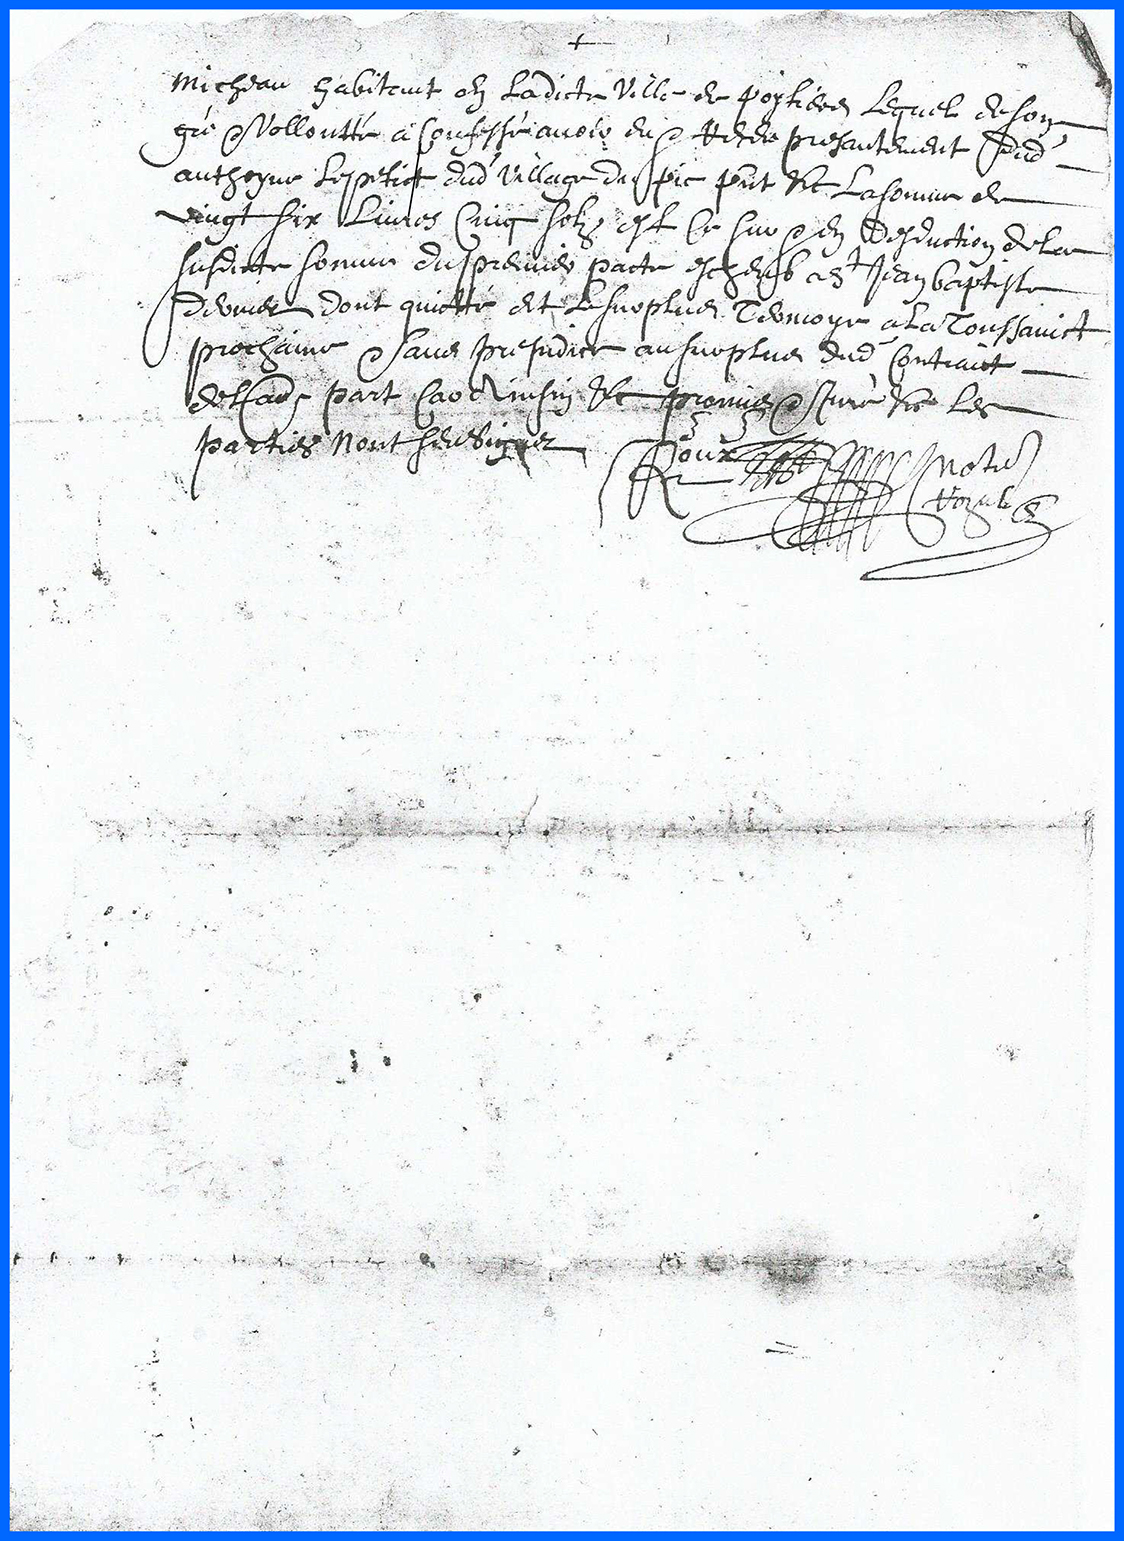 Micheau habitant en ladicte ville de poytiers lequel de son
gré & vollonté a confessé avoir eu & presantement dud
anthoyne le petict dud village du pic pnt &c la somme de
vingt six livres cinq solz est ce sur & en desduction de la
susdicte somme du premier pacte escheu a st Jean baptiste
dernier dont quicte et le surplus a la Toussainct
prochaine & sans prejudice au surplus dud contraict
part &c promis & juré &c les
parties nont sceu signer
Roux notre
Royal